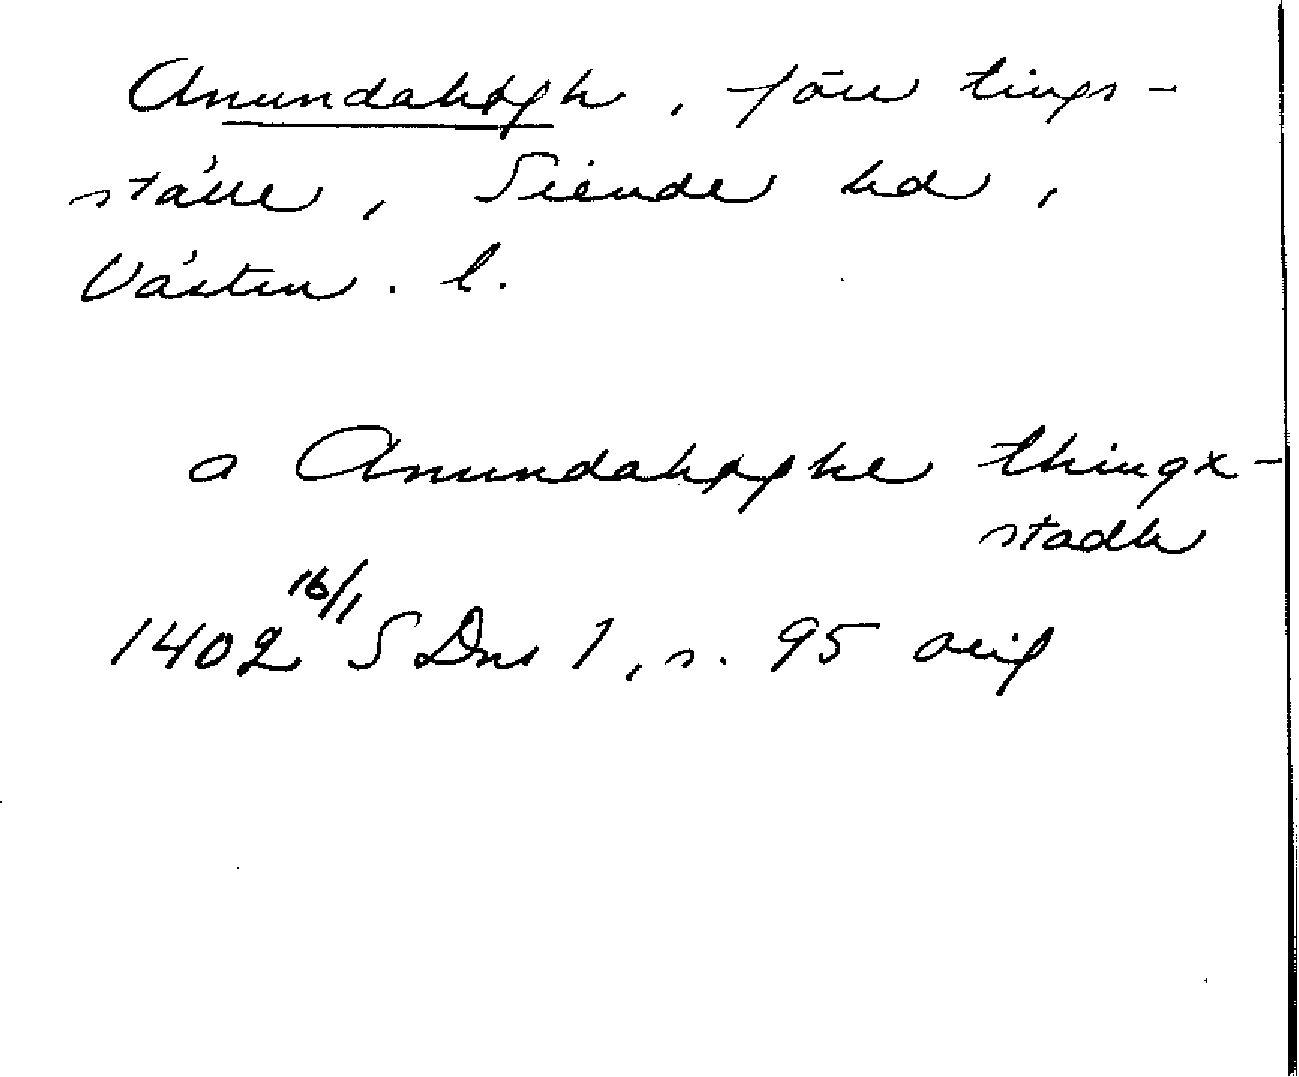 Anundahøgh, förr tings-
ställe, Siende hd,
Västm. l.
a Anundahøghe thingx-
stadh
1402 16/1 SDns 1, s. 95 orig